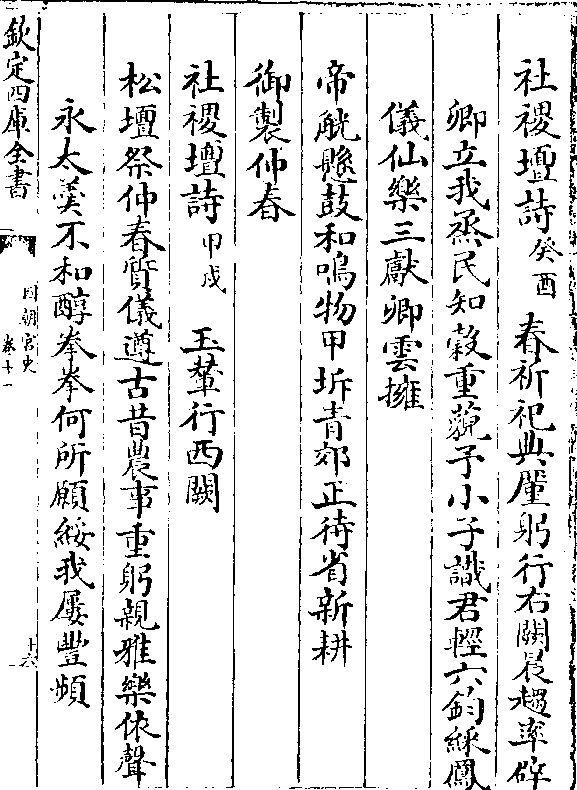 社稷壇詩癸酉 春祈祀典厪躬行右闕晨趨率辟
卿立我烝民知穀重藐予小子識君輕六鈞綵鳳
儀仙樂三獻卿雲擁
帝觥懸鼓和鳴物甲坼青郊正待省新耕
御製仲春
社稷壇詩甲戌 玉輦行西闕
松壇祭仲春質儀遵古昔農事重躬親雅樂依聲
永太羮不和醇拳拳何所願綏我屢豐頻
欽定四庫全書
國朝宮史
卷十一
十六